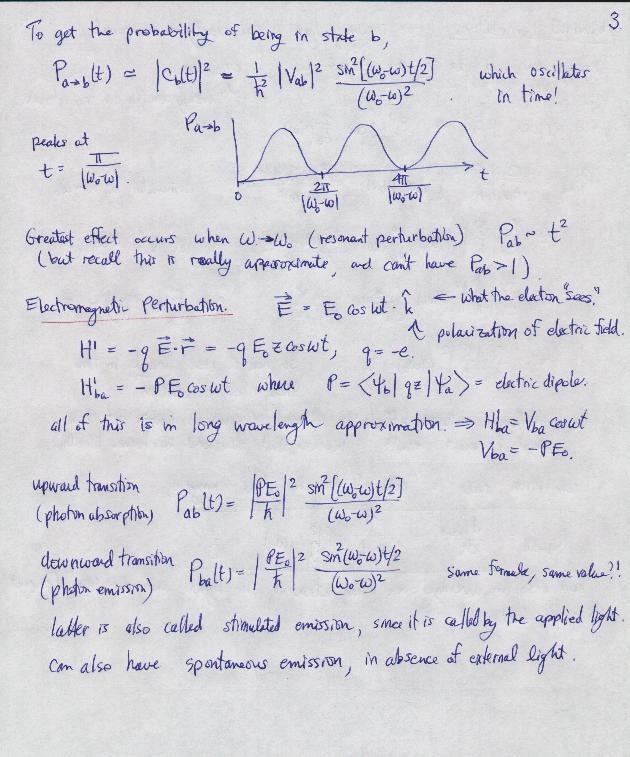 3.
To get the probability of being in state b,
P_{a→b}(t) ≃ |C_b(t)|² ≃ 1/ħ² |V_{ab}|² sin²[(ω₀-ω)t/2]/(ω₀-ω)² . which oscillates in time!
peaks at
t = π/|ω₀-ω| .
P_{a→b}
0 2π/|ω₀-ω| 4π/|ω₀-ω| t
Greatest effect occurs when ω→ω₀ (resonant perturbation) P_{ab} ~ t²
(but recall this is really approximate, and can't have P_{ab} > 1)
Electromagnetic Perturbation. E⃗ = E₀ cos ωt · k̂ ← what the electon "sees."
↖ polarization of electric field.
H' = -q E⃗·r⃗ = -q E₀ z cos ωt, q = -e.
H'_{ba} = - P E₀ cos ωt where P = <Ψ_b| qz |Ψ_a> = electric dipole.
all of this is in long wavelength approximation. ⇒ H'_{ba} = V_{ba} cos ωt
V_{ba} = -PE₀.
upward transition
(photon absorption) P_{ab}(t) = |PE₀/ħ|² sin²[(ω₀-ω)t/2]/(ω₀-ω)²
downward transition
(photon emission) P_{ba}(t) = |PE₀/ħ|² sin²(ω₀-ω)t/2/(ω₀-ω)² same formula, same value?!
latter is also called stimulated emission, since it is called by the applied light.
can also have spontaneous emission, in absence of external light.